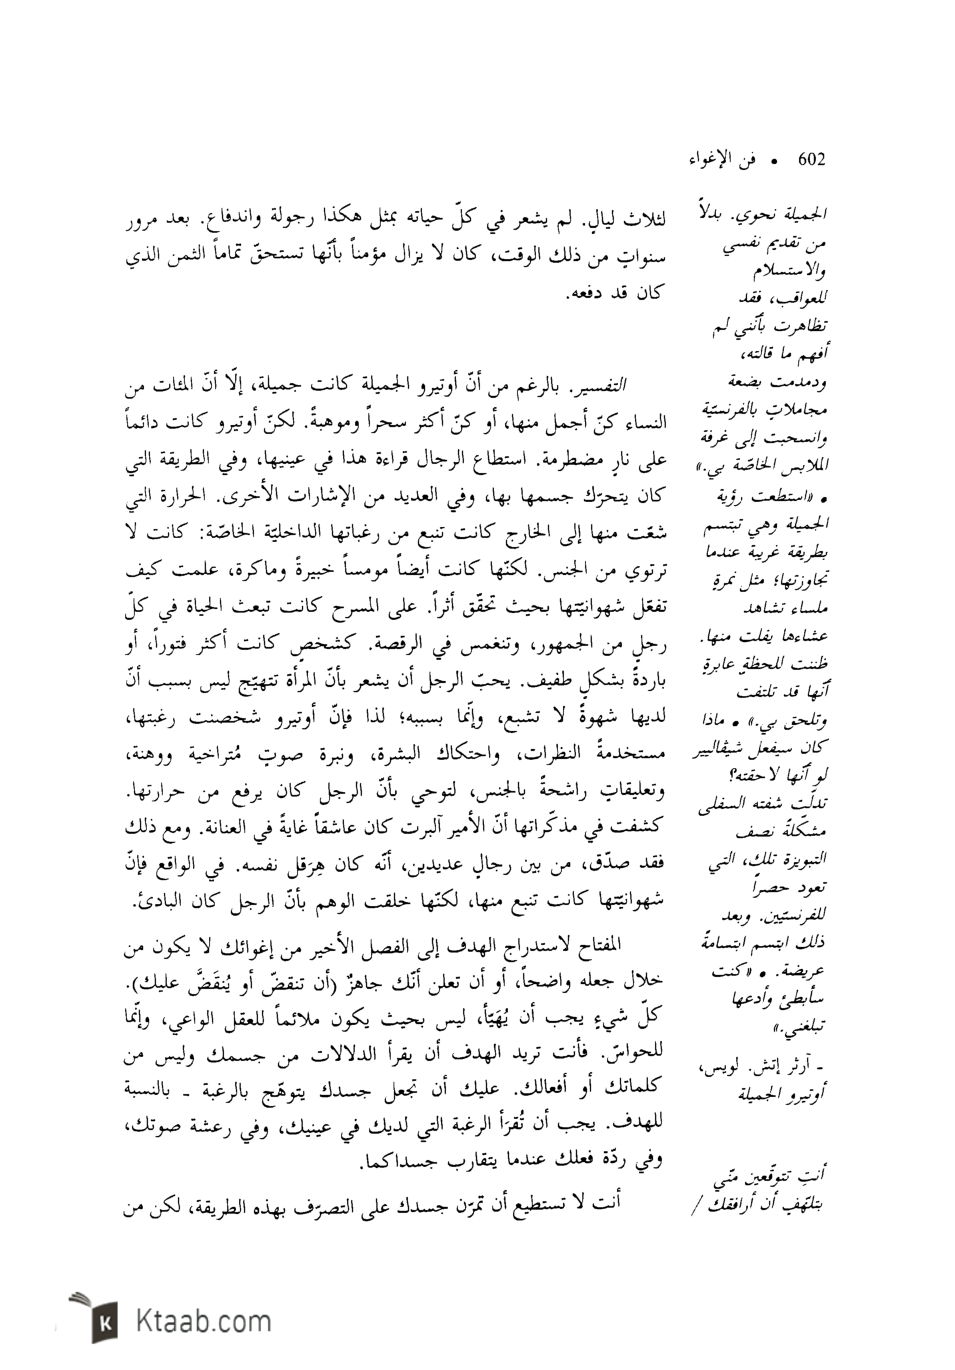 602 • فن الإغواء
لثلاث ليالٍ. لم يشعر في كلّ حياته بمثل هكذا رجولة واندفاع. بعد مرور
سنواتٍ من ذلك الوقت، كان لا يزال مؤمناً بأنّها تستحقّ تماماً الثمن الذي
كان قد دفعه.
التفسير. بالرغم من أنّ أوتيرو الجميلة كانت جميلة، إلّا أنّ المئات من
النساء كنّ أجمل منها، أو كنّ أكثر سحراً وموهبةً. لكنّ أوتيرو كانت دائماً
على نارٍ مضطرمة. استطاع الرجال قراءة هذا في عينيها، وفي الطريقة التي
كان يتحرّك جسمها بها، وفي العديد من الإشارات الأخرى. الحرارة التي
شعّت منها إلى الخارج كانت تنبع من رغباتها الداخليّة الخاصّة: كانت لا
ترتوي من الجنس. لكنّها كانت أيضاً مومساً خبيرةً وماكرة، علمت كيف
تفعّل شهوانيّتها بحيث تحقّق أثراً. على المسرح كانت تبعث الحياة في كلّ
رجلٍ من الجمهور، وتنغمس في الرقصة. كشخصٍ كانت أكثر فتوراً، أو
باردةً بشكلٍ طفيف. يحبّ الرجل أن يشعر بأنّ المرأة تتهيّج ليس بسبب أنّ
لديها شهوةً لا تشبع، وإنّما بسببه؛ لذا فإنّ أوتيرو شخصنت رغبتها،
مستخدمةً النظرات، واحتكاك البشرة، ونبرة صوتٍ مُتراخية ووهنة،
وتعليقاتٍ راشحةً بالجنس، لتوحي بأنّ الرجل كان يرفع من حرارتها.
كشفت في مذكّراتها أنّ الأمير آلبرت كان عاشقاً غايةً في العنانة. ومع ذلك
فقد صدّق، من بين رجالٍ عديدين، أنّه كان هِرَقل نفسه. في الواقع فإنّ
شهوانيّتها كانت تنبع منها، لكنّها خلقت الوهم بأنّ الرجل كان البادئ.
المفتاح لاستدراج الهدف إلى الفصل الأخير من إغوائك لا يكون من
خلال جعله واضحاً، أو أن تعلن أنّك جاهزٌ (أن تنقضّ أو يُنقَضَّ عليك).
كلّ شيءٍ يجب أن يُهَيّأ، ليس بحيث يكون ملائماً للعقل الواعي، وإنّما
للحواسّ. فأنت تريد الهدف أن يقرأ الدلالات من جسمك وليس من
كلماتك أو أفعالك. عليك أن تجعل جسدك يتوهّج بالرغبة ـ بالنسبة
للهدف. يجب أن تُقرَأ الرغبة التي لديك في عينيك، وفي رعشة صوتك،
وفي ردّة فعلك عندما يتقارب جسداكما.
أنت لا تستطيع أن تمرّن جسدك على التصرّف بهذه الطريقة، لكن من
الجميلة نحوي. بدلاً
من تقديم نفسي
والاستسلام
للعواقب، فقد
تظاهرت بأنّني لم
أفهم ما قالته،
ودمدمت بضعة
مجاملاتٍ بالفرنسيّة
وانسحبت إلى غرفة
الملابس الخاصّة بي.»
• «استطعت رؤية
الجميلة وهي تبتسم
بطريقة غريبة عندما
تجاوزتها؛ مثل نمرةٍ
ملساء تشاهد
عشاءها يفلت منها.
ظننت للحظةٍ عابرةٍ
أنّها قد تلتفت
وتلحق بي.» • ماذا
كان سيفعل شيڤاليير
لو أنّها لاحقته؟
تدلّت شفته السفلى
مشكّلةً نصف
التبويزة تلك، التي
تعود حصراً
للفرنسيّين. وبعد
ذلك ابتسم ابتسامةً
عريضة. • «كنت
سأبطئ وأدعها
تبلغني.»
ـ آرثر إتش. لويس،
أوتيرو الجميلة
أنتِ تتوقّعين منّي
بتلهّفٍ أن أرافقك /
Ktaab.com